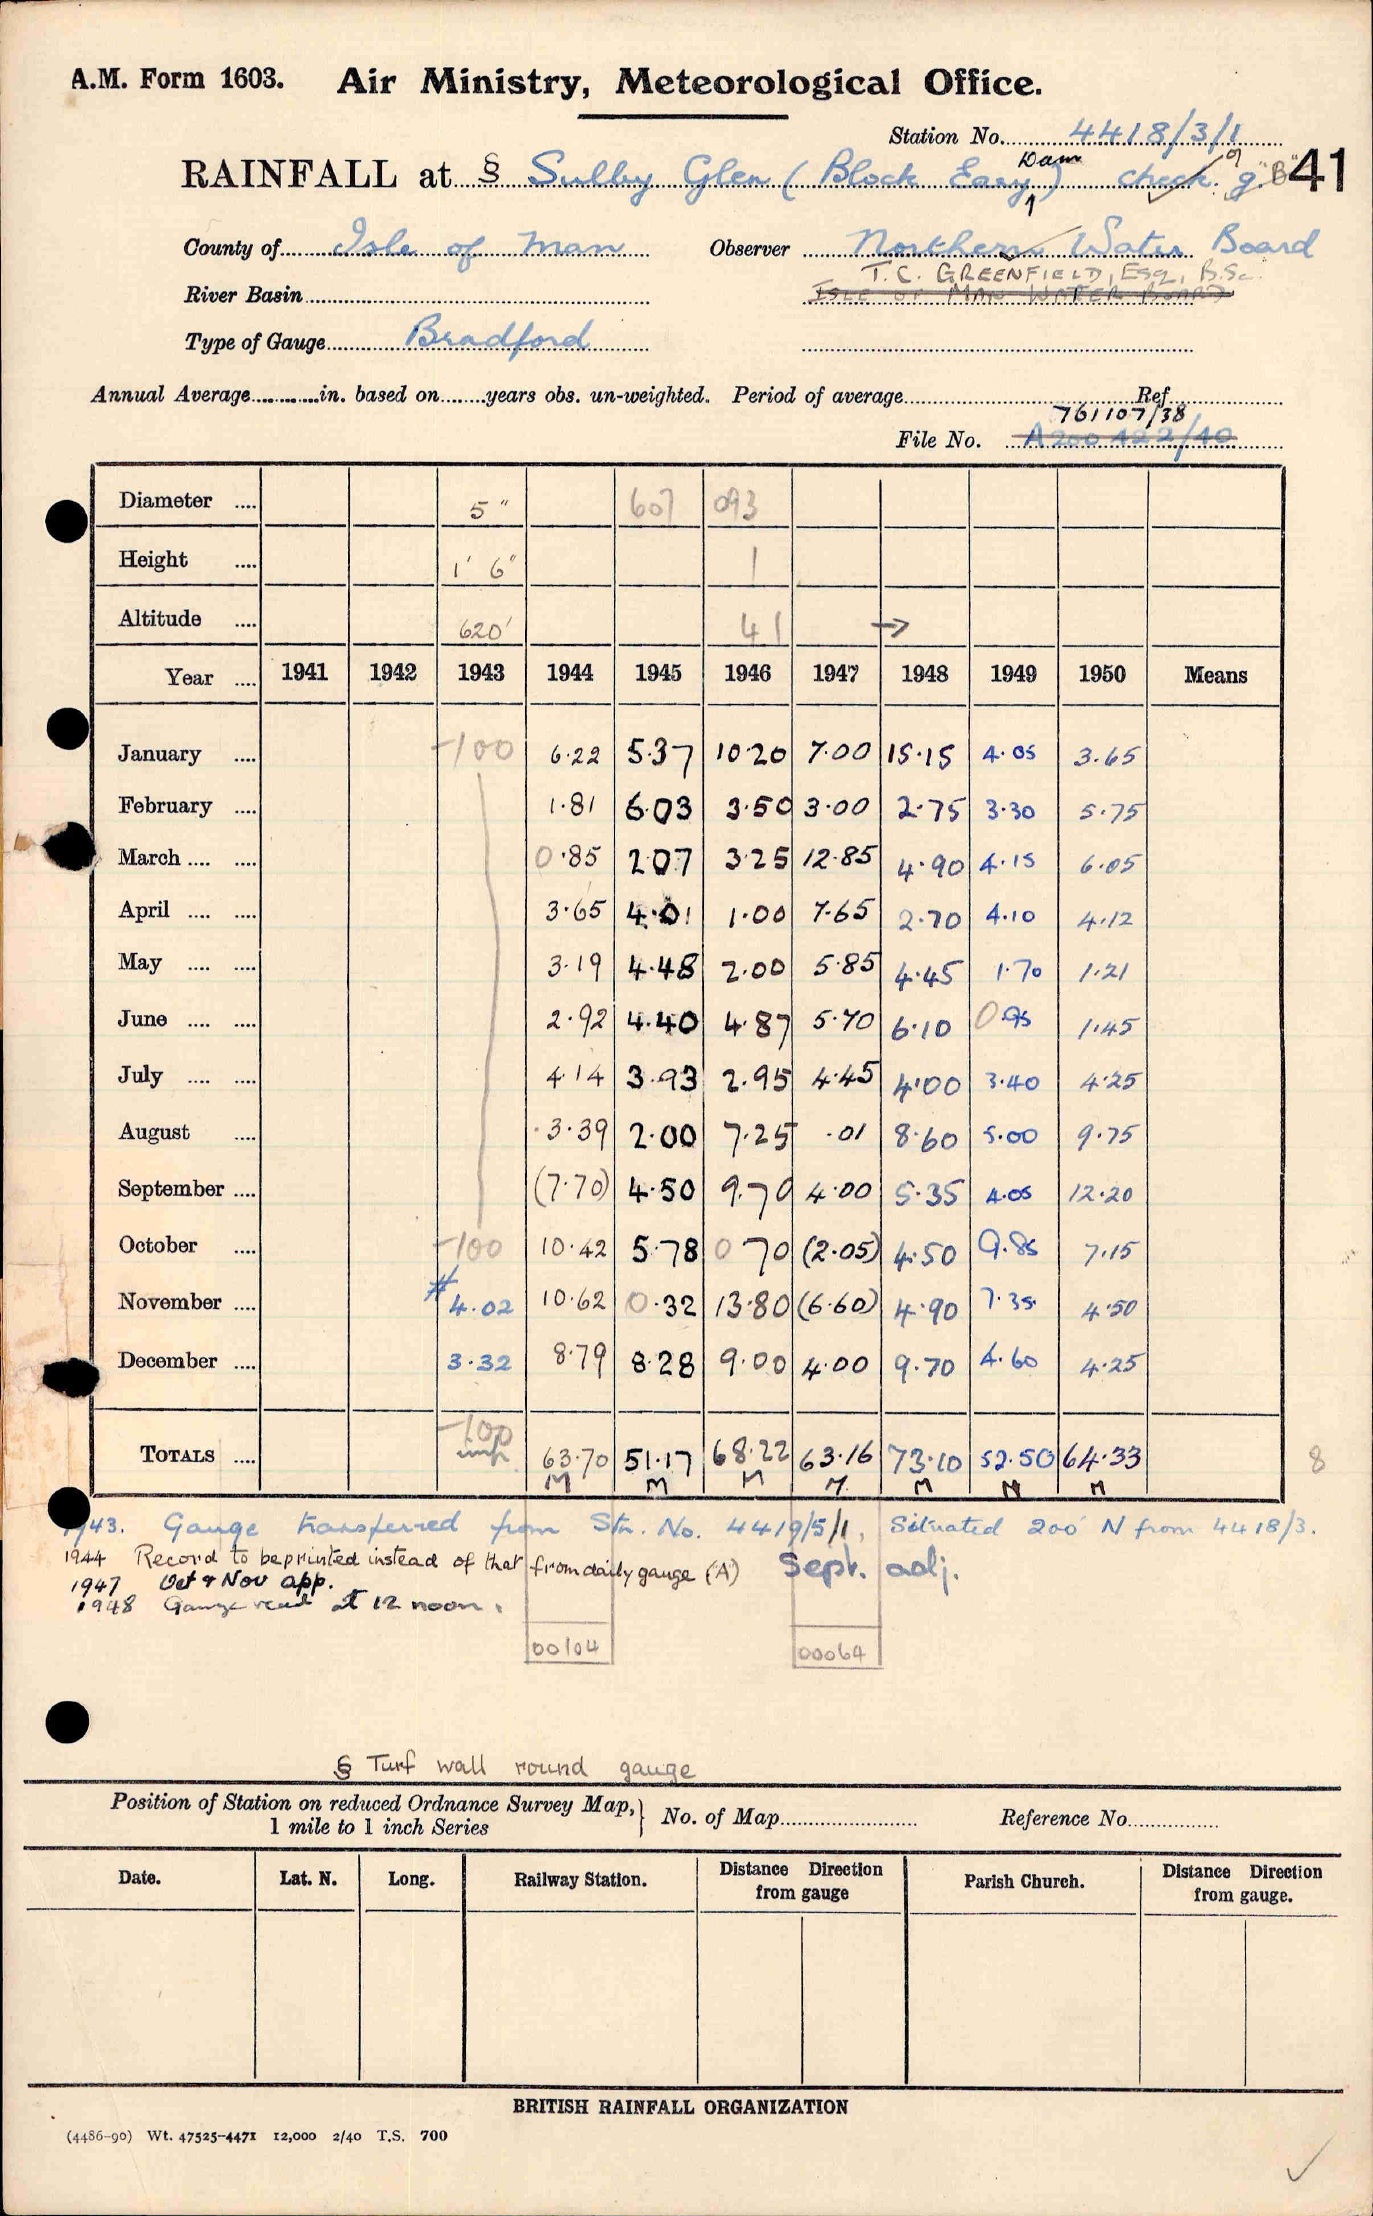 A.M. Form 1603. Air Ministry, Meteorological Office.
Station No. 4418/3/1
RAINFALL at § Sulby Glen (Block Eary Dam) check g. "B" 41
County of Isle of Man Observer Northern Water Board
T.C. GREENFIELD, Esq., B.Sc.
River Basin ISLE OF MAN WATER BOARD
Type of Gauge Bradford
Annual Average in. based on years obs. un-weighted. Period of average Ref
761107/38
File No. A200422/40
Diameter 5" 607 093
Height 1' 6" 1
Altitude 620' 41 →
Year 1941 1942 1943 1944 1945 1946 1947 1948 1949 1950 Means
January -100 6.22 5.37 10.20 7.00 15.15 4.05 3.65
February 1.81 6.03 3.50 3.00 2.75 3.30 5.75
March 0.85 2.07 3.25 12.85 4.90 4.15 6.05
April 3.65 4.01 1.00 7.65 2.70 4.10 4.12
May 3.19 4.48 2.00 5.85 4.45 1.70 1.21
June 2.92 4.40 4.87 5.70 6.10 0.95 1.45
July 4.14 3.93 2.95 4.45 4.00 3.40 4.25
August 3.39 2.00 7.25 .01 8.60 5.00 9.75
September (7.70) 4.50 9.70 4.00 5.35 4.05 12.20
October -100 10.42 5.78 0 70 (2.05) 4.50 9.85 7.15
November # 4.02 10.62 0.32 13.80 (6.60) 4.90 7.35 4.50
December 3.32 8.79 8.28 9.00 4.00 9.70 4.60 4.25
-100
TOTALS imp. 63.70 51.17 68.22 63.16 73.10 52.50 64.33 8
M M M M M M M
1943. Gauge transferred from Stn. No. 4419/5/1, Situated 200' N from 4418/3.
1944 Record to be printed instead of that from daily gauge (A) Sept. adj.
1947 Oct & Nov app.
1948 Gauge read at 12 noon.
00104 00064
§ Turf wall round gauge
Position of Station on reduced Ordnance Survey Map,
1 mile to 1 inch Series } No. of Map Reference No.
Date. Lat. N. Long. Railway Station. Distance Direction from gauge Parish Church. Distance Direction from gauge.
BRITISH RAINFALL ORGANIZATION
(4486-90) Wt. 47525-4471 12,000 2/40 T.S. 700